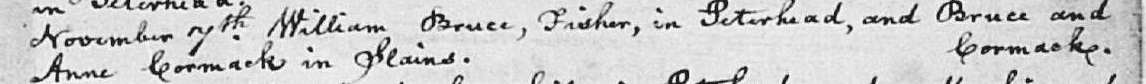 in Peterhead.
November 7th. William Bruce, Fisher, in Peterhead, and Bruce and
Anne Cormack in Plains. Cormack.